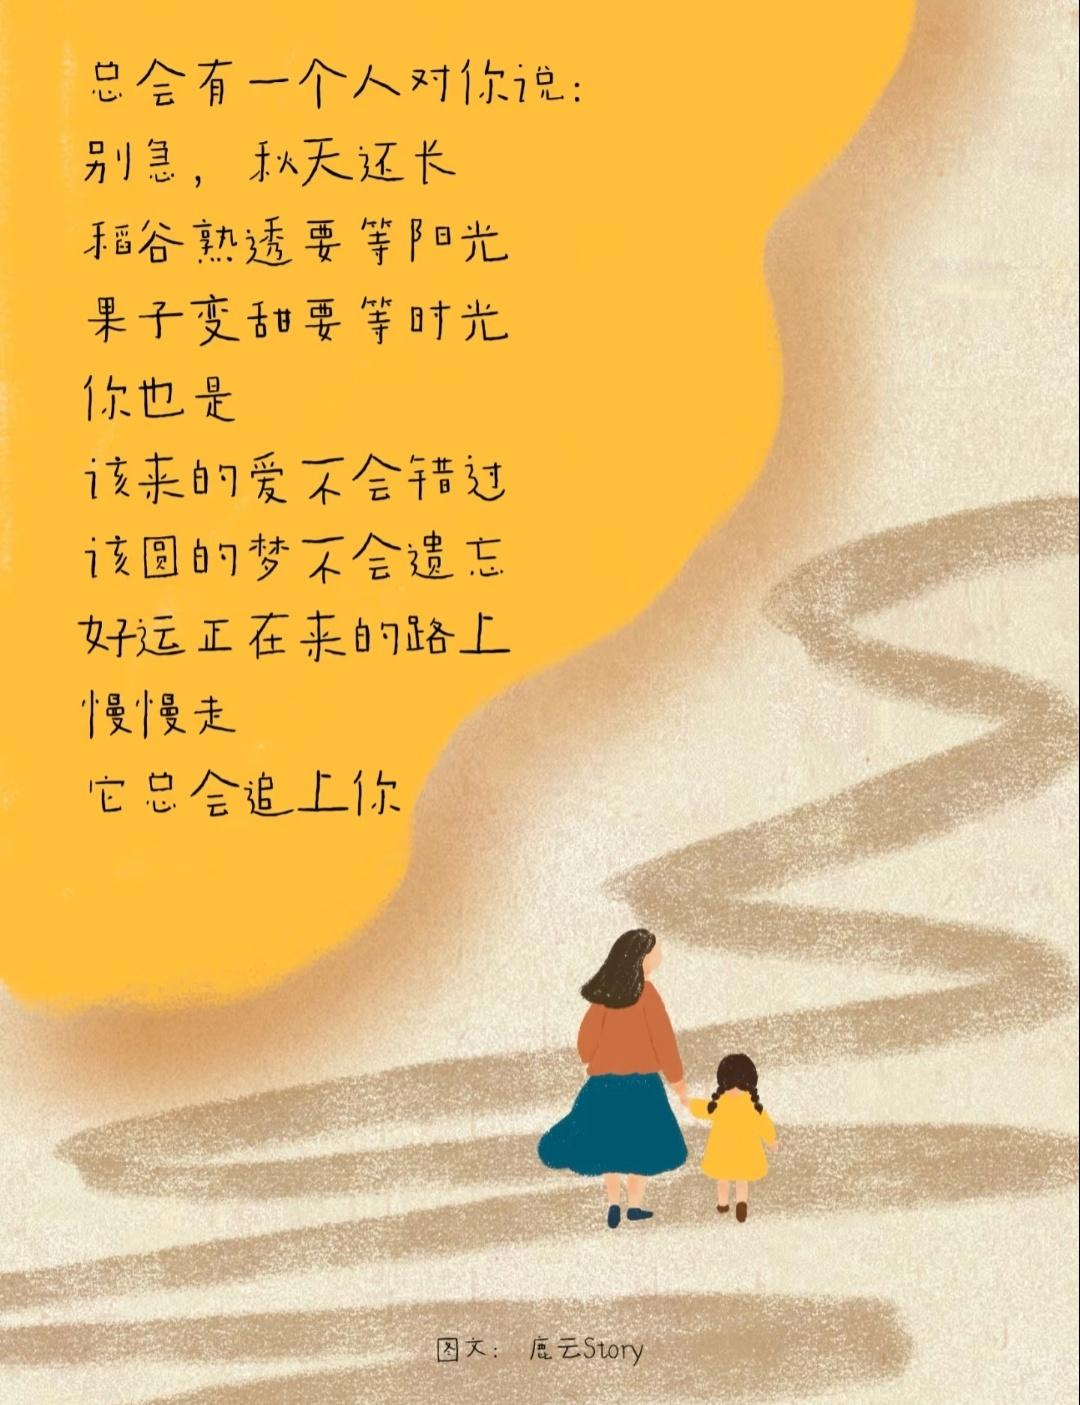 总会有一个人对你说：
别急，秋天还长
稻谷熟透要等阳光
果子变甜要等时光
你也是
该来的爱不会错过
该圆的梦不会遗忘
好运正在来的路上
慢慢走
它总会追上你
图文： 鹿云Story